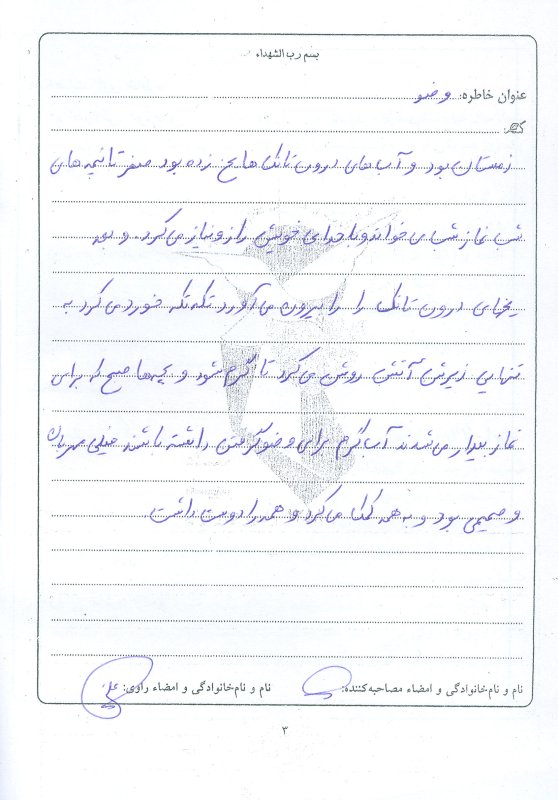 بسم رب الشهداء
عنوان خاطره: وضو
کد:
زمستان بود و آب های درون تانک ها یخ زده بود صفر تا نیمه های
شب نماز شب می خواند و با خدای خویش راز و نیاز می کرد. و بعد
یخهای درون تانک را را بیرون می آورد تکه تکه خورد می کرد به
تنهایی زیرش آتش روشن می کرد تا گرم شود و بچه ها صبح که برای
نماز بیدار می شدند آب گرم برای وضو گرفتن داشته باشند خیلی مهربان
و صمیمی بود و به همه کمک می کرد و همه را دوست داشت.
نام و نام‌خانوادگی و امضاء مصاحبه‌کننده:
نام و نام‌خانوادگی و امضاء راوی:
۳